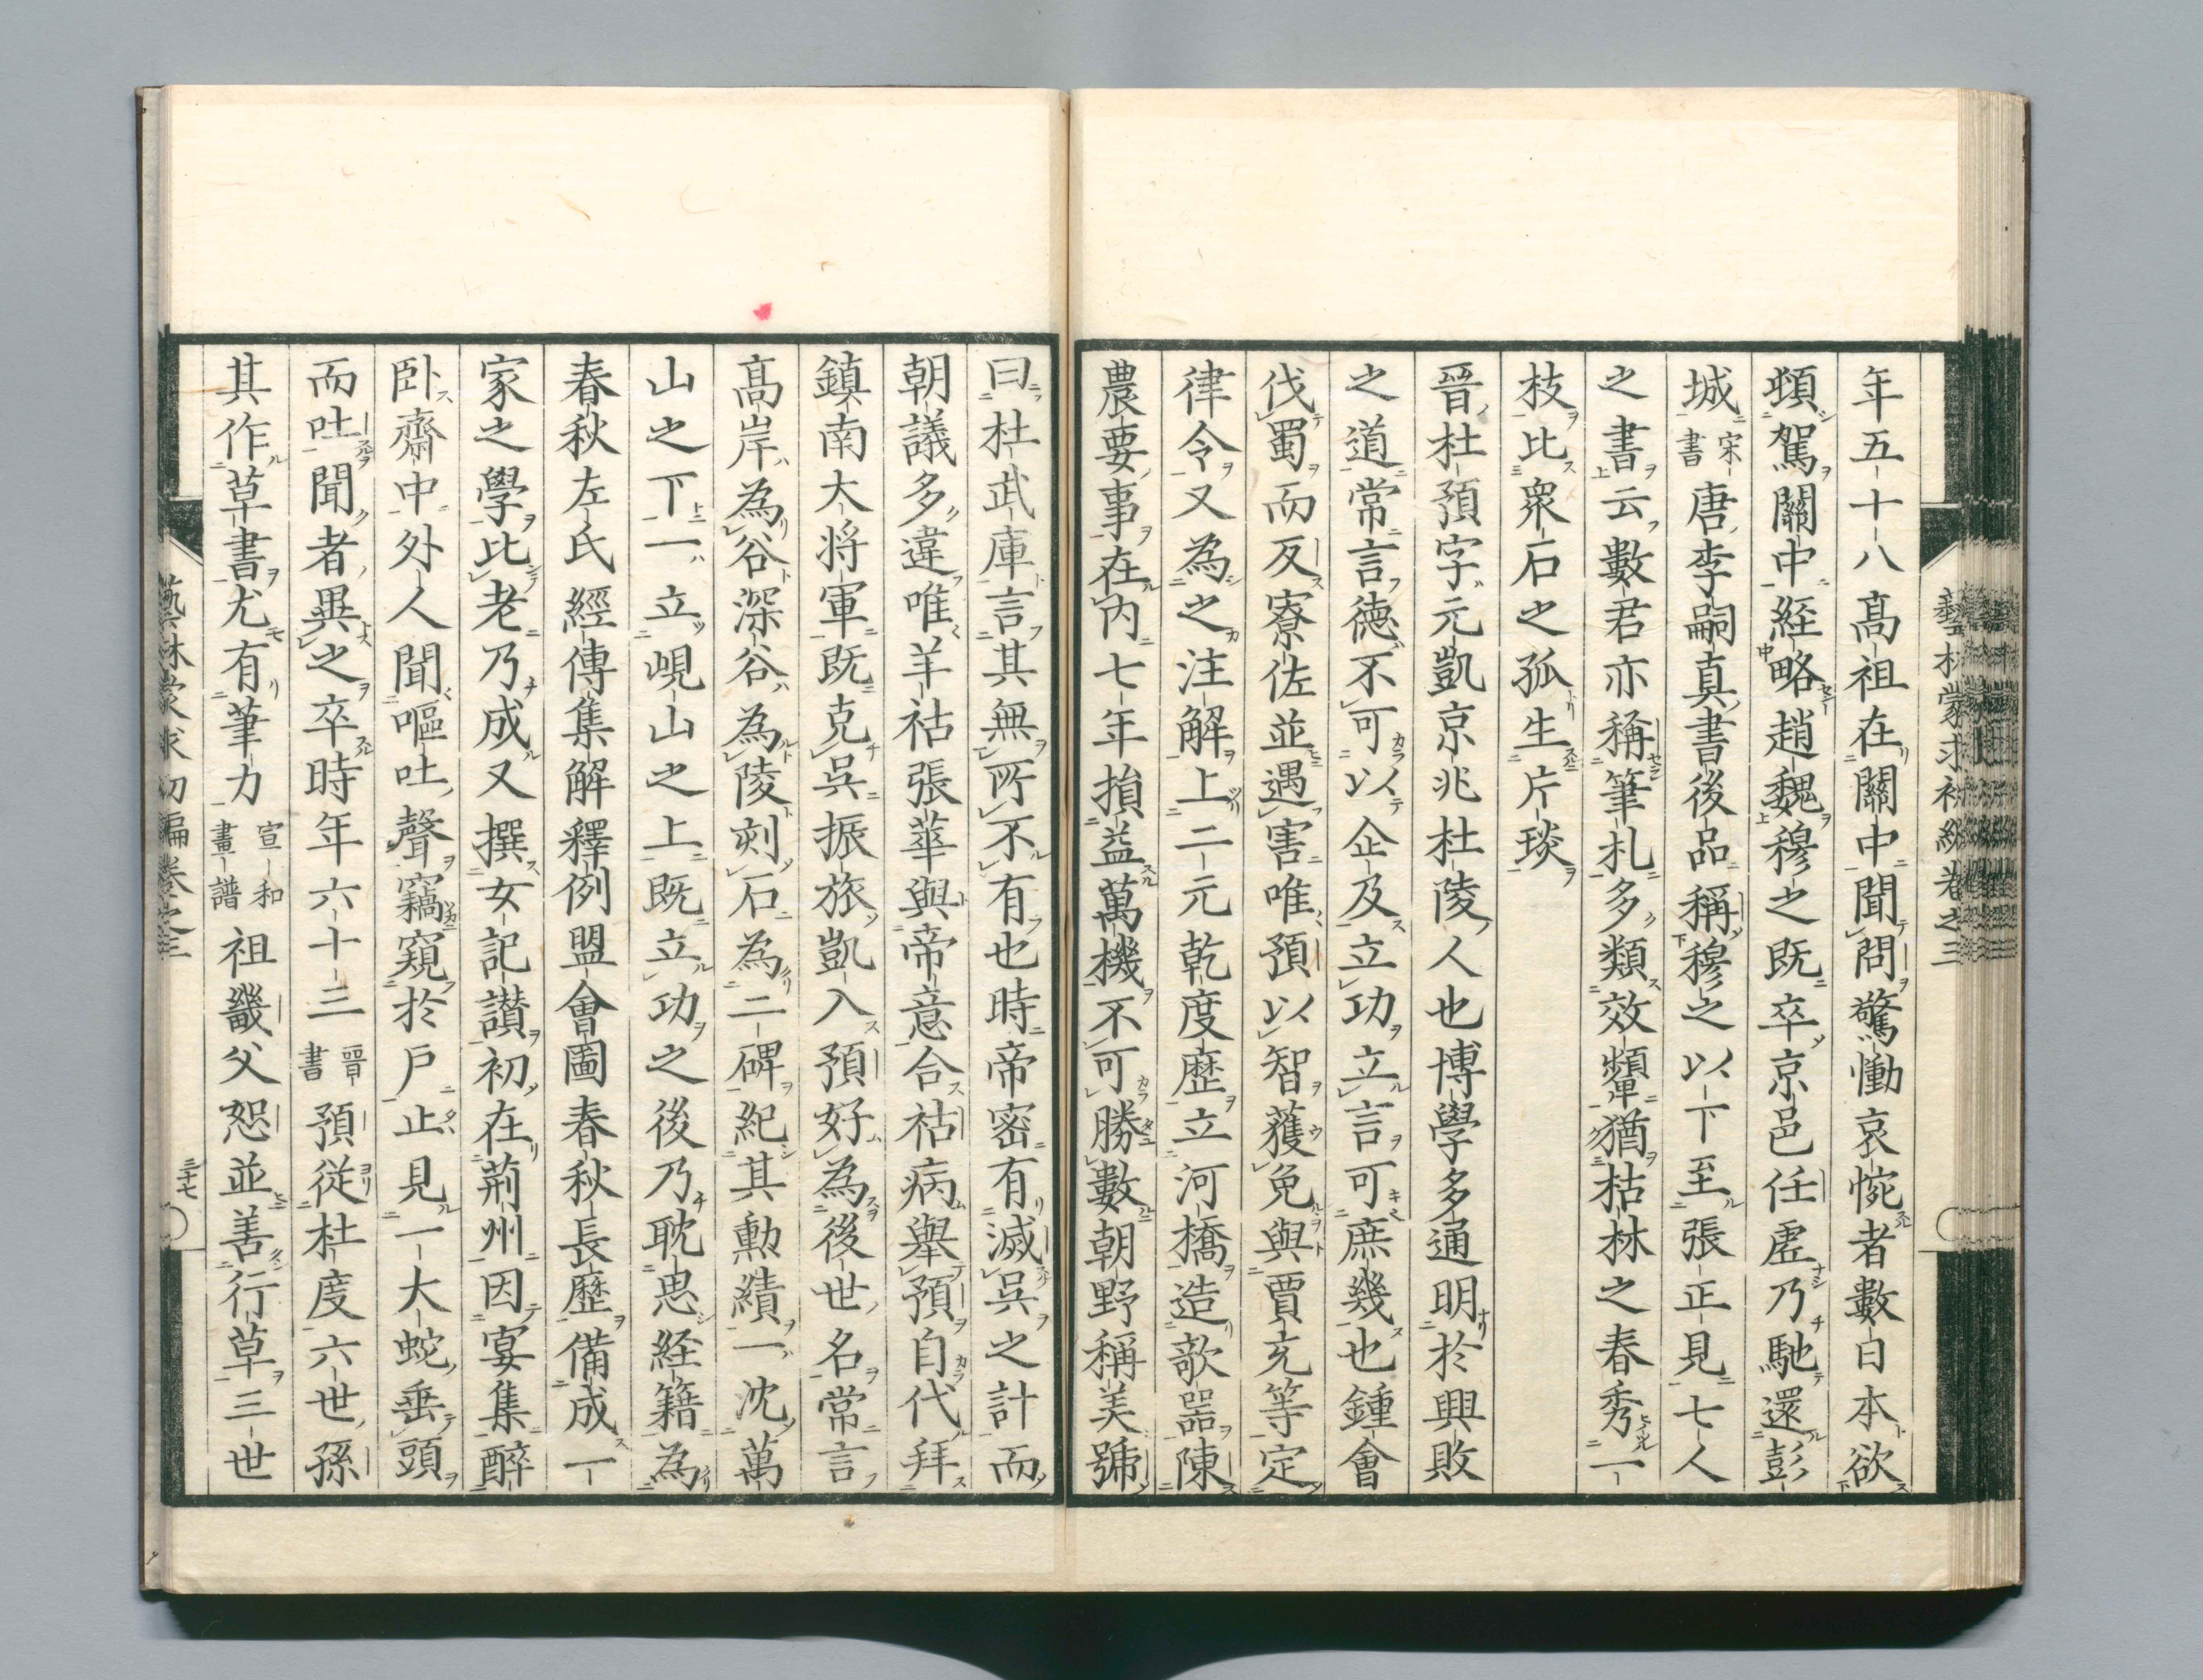 年五十八高祖在關中聞問驚慟哀惋者數日本欲
頓駕關中経略趙魏穆之既卒京邑任虛乃馳還彭
城宋書唐李嗣真書後品稱穆之以下至張正見七人
之書云數君亦稱筆札多類效顰猶枯林之春秀一
枝比衆石之孤生片琰
晉杜預字元凱京兆杜陵人也博學多通明於興敗
之道常言德不可以企及立功立言可庶幾也鍾會
伐蜀而反寮佐並遇害唯預以智獲免與賈充等定
律令又為之注解上二元乾度歷立河橋造欹器陳
農要事在內七年損益萬機不可勝數朝野稱美號
曰杜武庫言其無所不有也時帝密有滅吳之計而
朝議多違唯羊祜張華與帝意合祜病舉預自代拜
鎮南大将軍既克吳振旅凱入預好為後世名常言
高岸為谷深谷為陵刻石為二碑紀其勳績一沈萬
山之下一立峴山之上既立功之後乃耽思経籍為
春秋左氏經傳集解釋例盟會圖春秋長歷備成一
家之學比老乃成又撰女記讃初在荊州因宴集醉
卧齋中外人聞嘔吐聲竊窺於戶止見一大蛇垂頭
而吐聞者異之卒時年六十三晉書預從杜度六世孫
其作草書尤有筆力宣和畫譜祖畿父恕並善行草三世
藝林蒙求初編卷之三
三十七